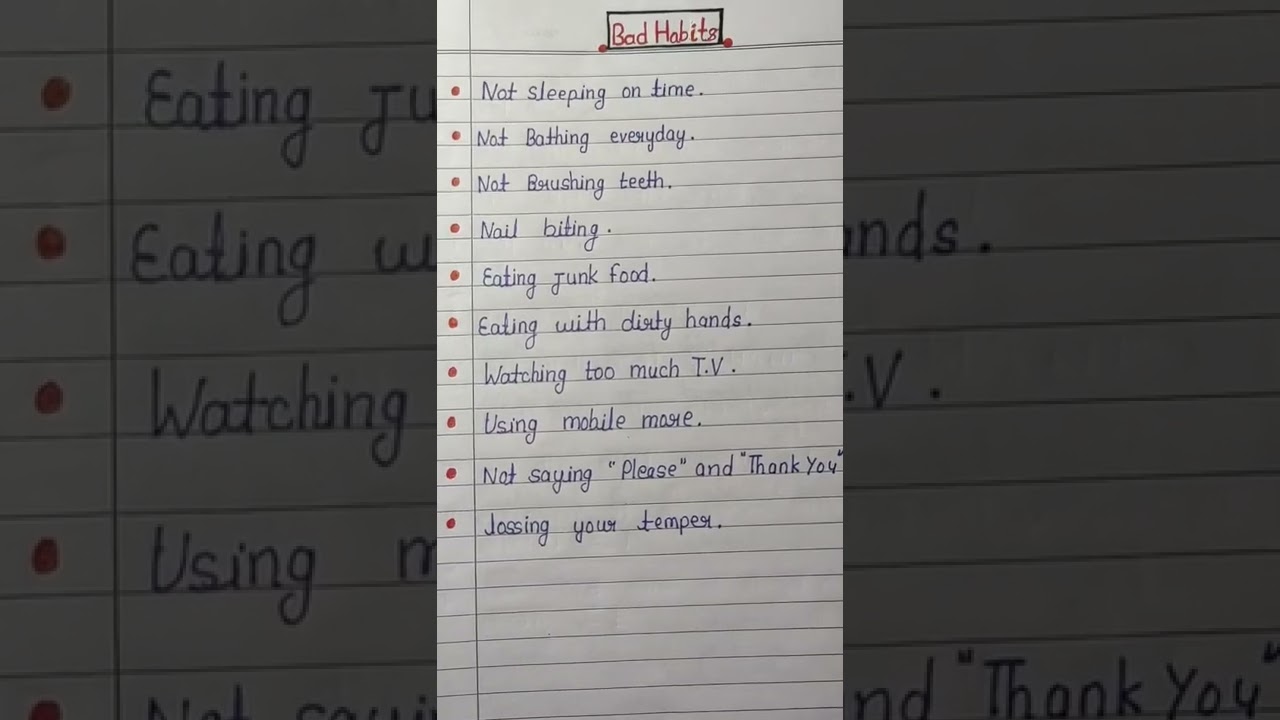 Bad Habits
Not sleeping on time.
Not Bathing everyday.
Not Brushing teeth.
Nail biting.
Eating Junk food.
Eating with dirty hands.
Watching too much T.V.
Using mobile more.
Not saying "Please" and "Thank You"
lossing your temper.